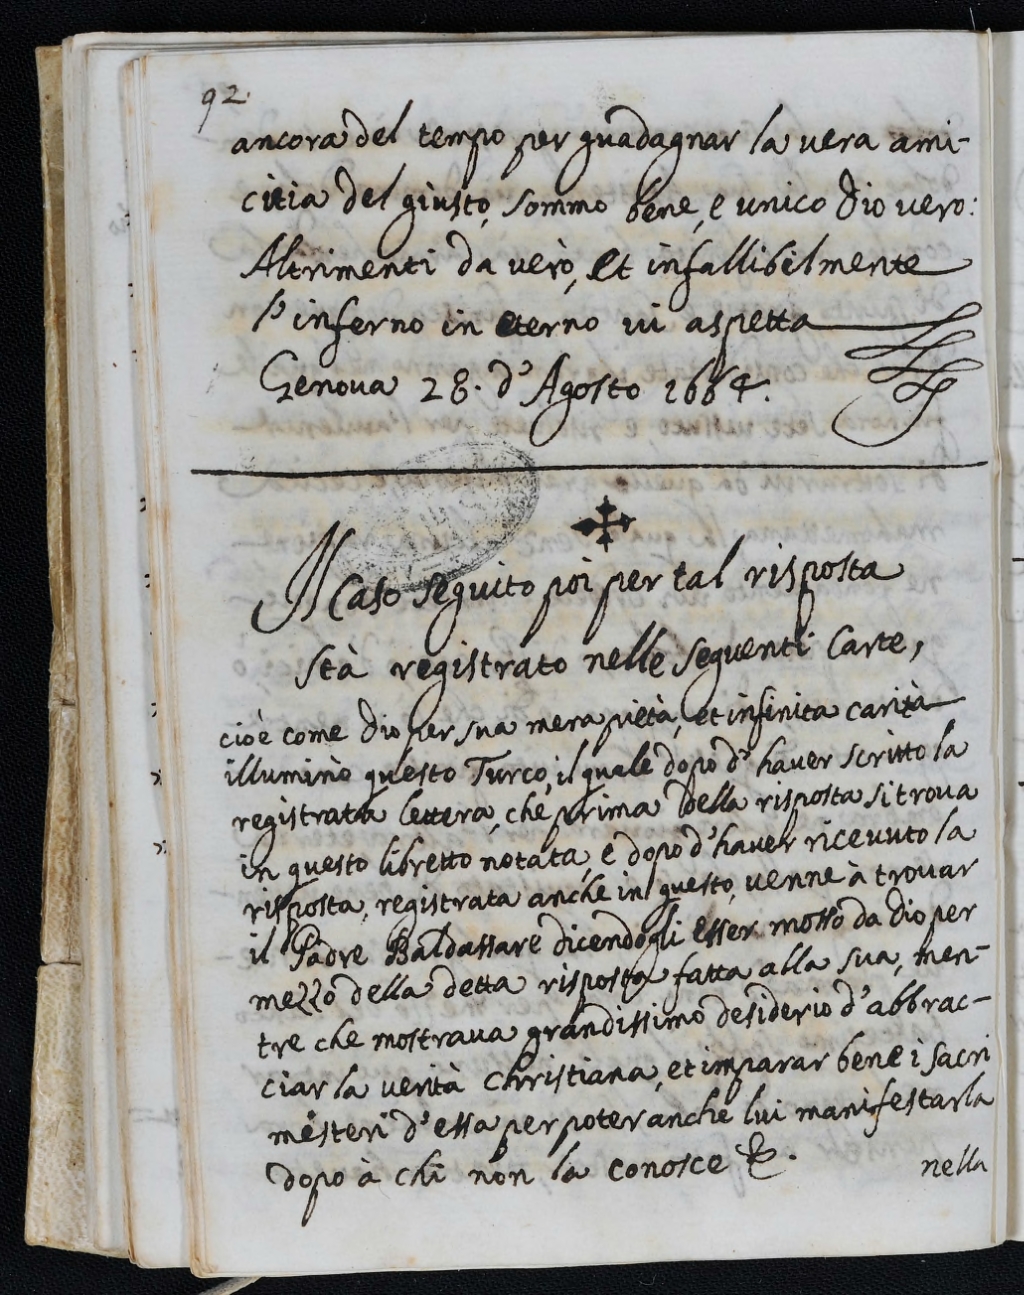 92.
ancora del tempo per guadagnar la vera ami-
citia del giusto, sommo bene, e unico Dio vero:
Altrimenti da verò, et infallibilmente
l'inferno in eterno vi aspetta
Genova 28. d'Agosto 1664.
Il Caso seguito poi per tal risposta
stà registrato nelle seguenti Carte,
cioè come Dio per sua mera pietà, et infinita carità
illuminò questo Turco, il quale dopo d'haver scritto la
registrata lettera, che prima della risposta si trova
in questo libretto notata, e dopo d'haver ricevuto la
risposta, registrata anche in questo, venne à trovar
il Padre Baldassare dicendogli esser mosso da Dio per
mezzo della detta risposta fatta alla sua, men-
tre che mostrava grandissimo desiderio d'abbrac-
ciar la verità Christiana, et imparar bene i sacri
misteri d'essa per poter anche lui manifestarla
dopo à chi non la conosce &.
nella